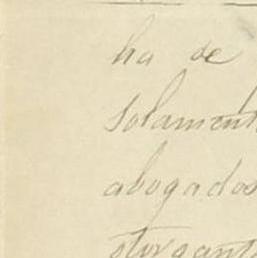 ha de
solament
abogados
otorgant